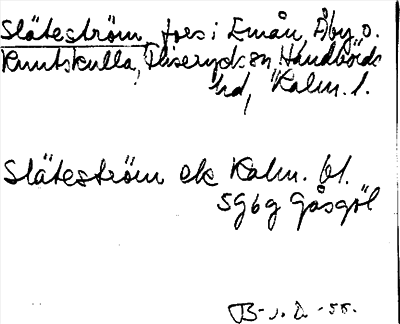 Släteström, fors i Emån, Åby o.
Knutskulla, Fliseryds sn, Handbörds
hd, Kalm. l.
Släteström ek Kalm. bl.
5G6g Gåsgöl
B-J. D. -55.